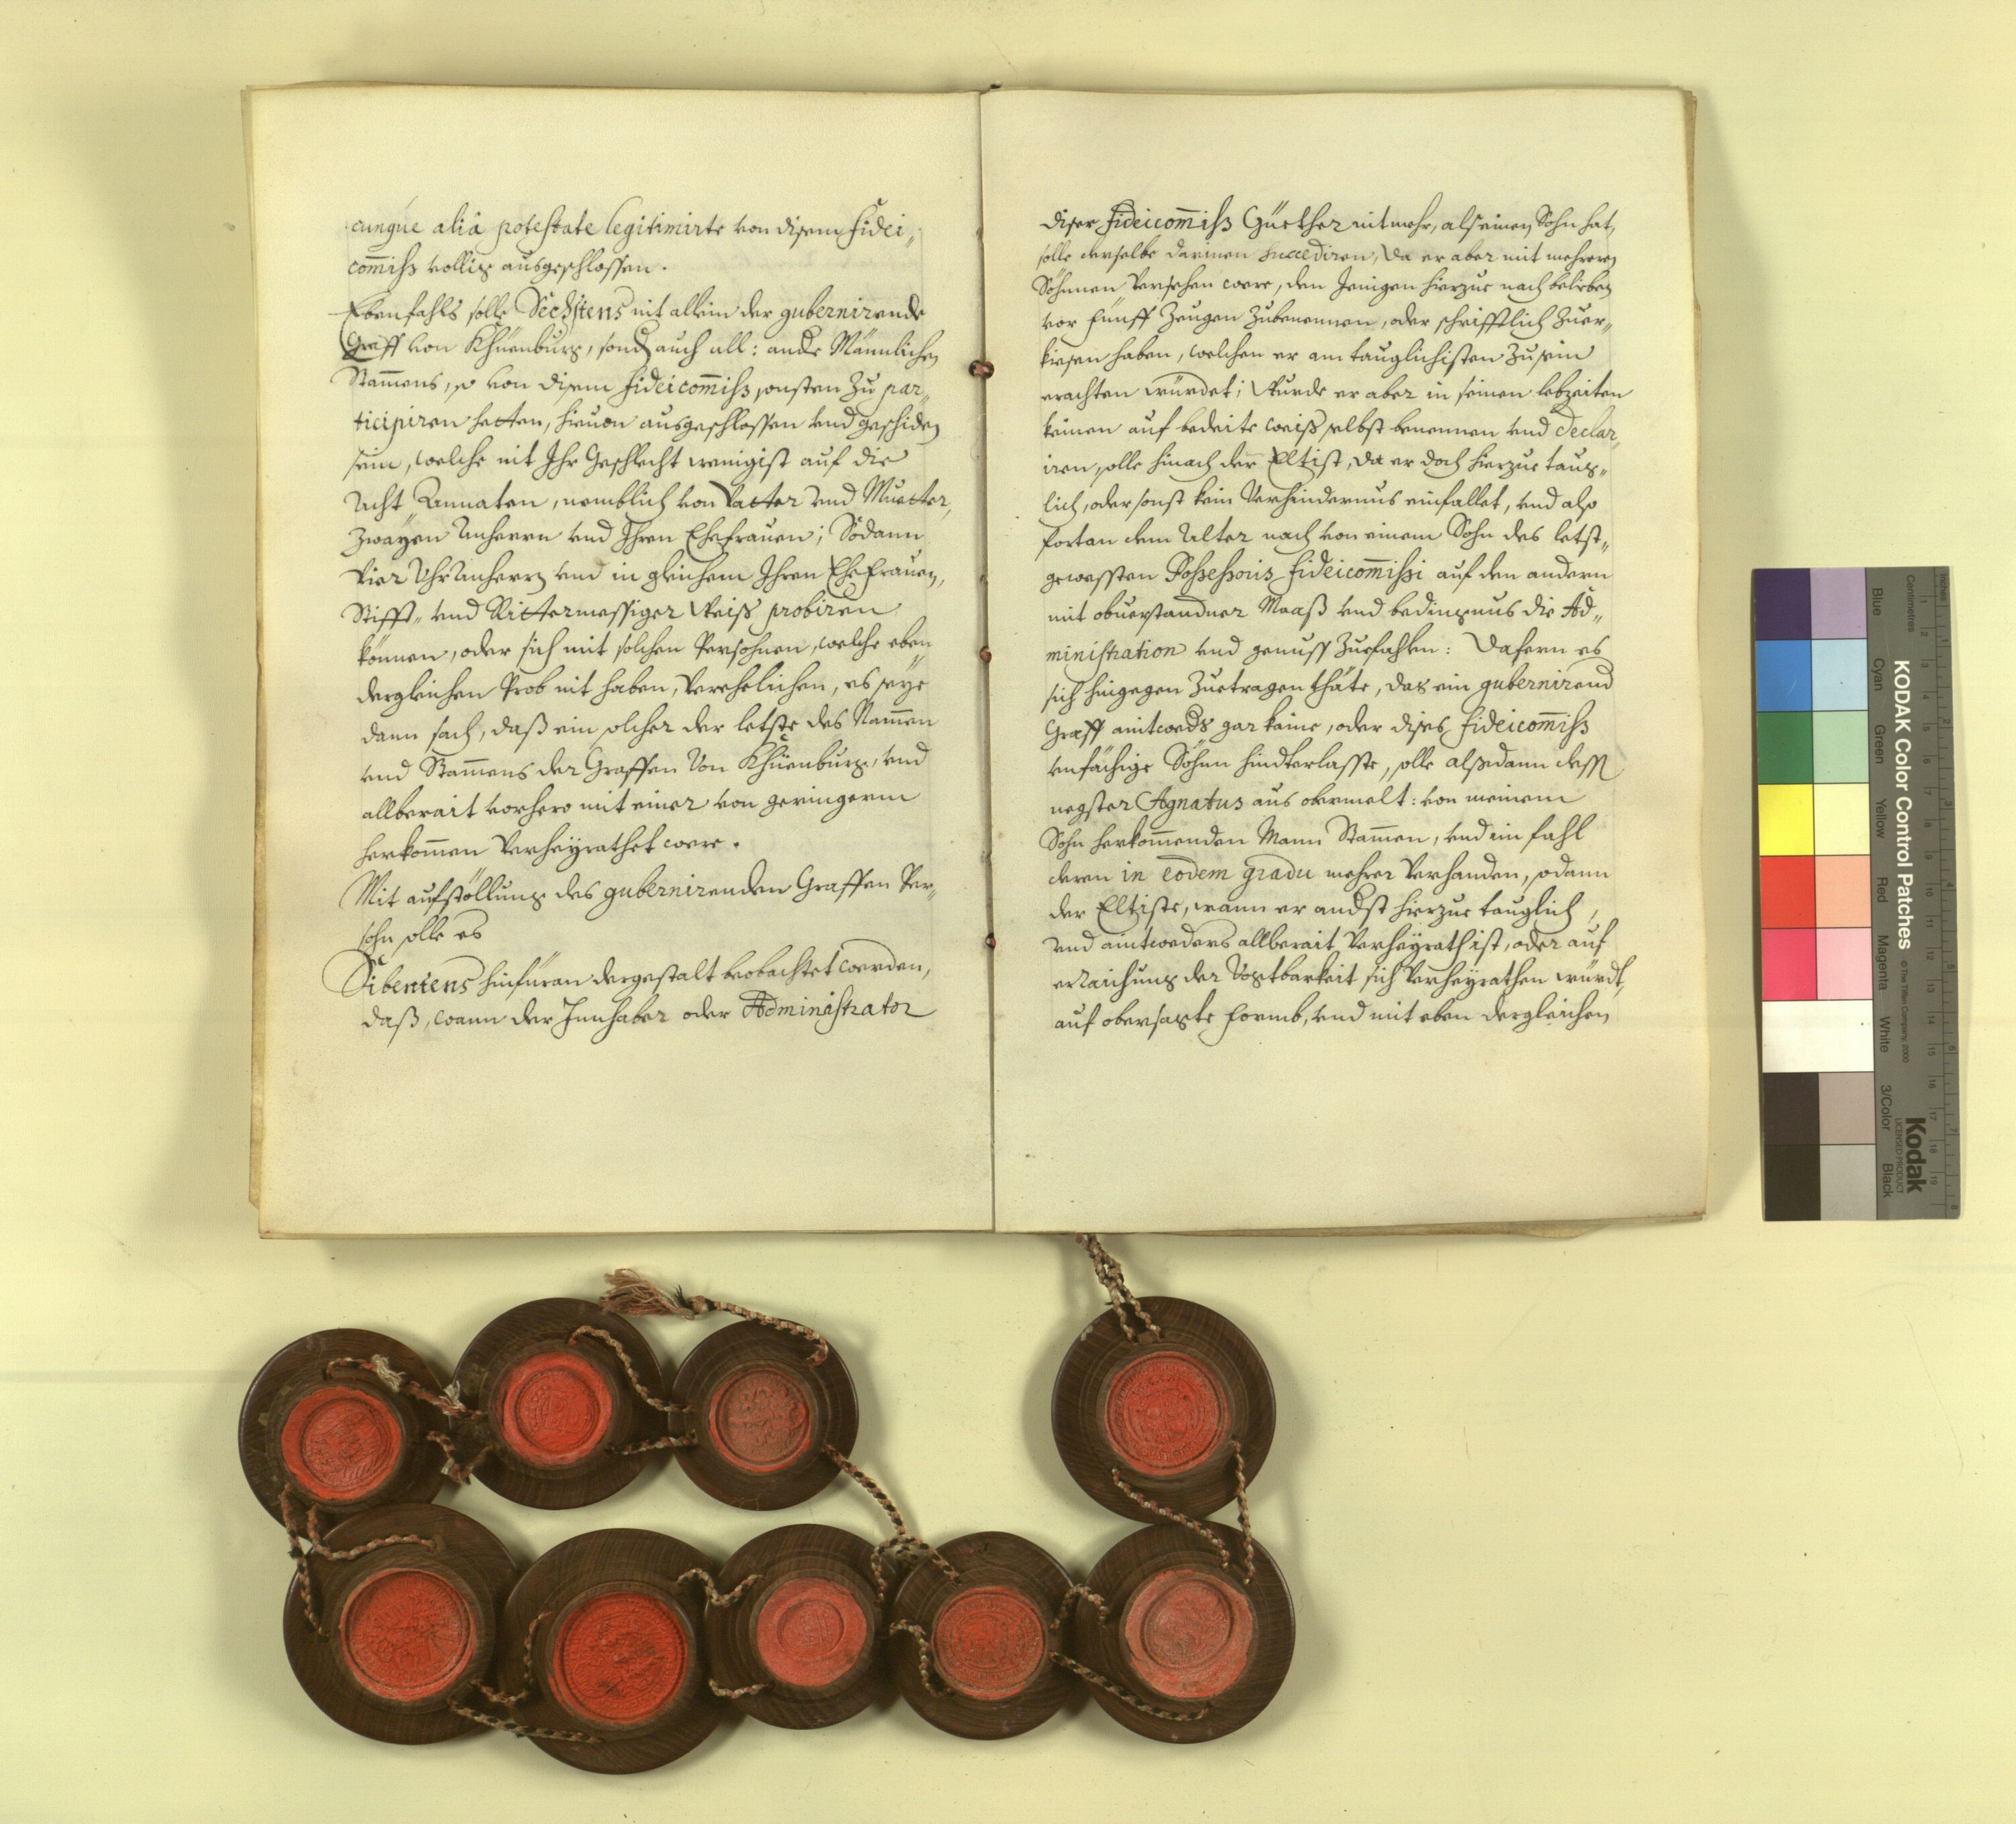 cunque aliâ potestate legitimirte von disem Fidei„
com̄iß völlig ausgeschlossen.
Ebenfahls solle Sechstens nit allein der gubernirende
Graff von Khüenburg, sond auch all: ande Männlichen
Stam̄ens, so von disem fideicom̄iß sonsten zu par„
ticipiren hetten, hieuon ausgeschlossen vnd geschiden
sein, welche nit Ihr Geschlecht wenigist auf die
Acht Annaten, nemblich von Vatter vnd Muetter,
Zwayen Anherrn vnd Ihren Ehefrauen; Sodann
Vier UhrAnherrn vnd in gleichem Ihren Ehefrauen,
Stifft„ vnd Rittermessiger Weiß probiren
können, oder sich mit solchen Persohnen, welche eben
dergleichen Prob nit haben, Verehelichen, es seye
dann sach, daß ein solcher der letste des Nam̄en
vnd Stam̄ens der Graffen Von Khüenburg, vnd
allberait vorhero mit einer von geringerm
herkom̄en Verheyrathet were.
Mit aufstöllung des gubernirenden Graffen Per„
sohn solle es
Sibentens hinfüran dergestalt beobachtet werden,
daß, wann der Innhaber oder Administrator
diser fideicom̄iß Güether nit mehr, als einen Sohn hat,
solle derselbe darinen succediren, da er aber mit mehreren
Söhnnen Versehen were, den Jenigen hierzue nach belieben
vor fünff Zeugen Zubenennen, oder schrifftlich Zuer„
kiesen haben, welchen er am tauglichisten Zu sein
erachten würdet; Wurde er aber in seinen lebzeiten
keinen auf bedeite weiß selbst benennen vnd declar„
iren, solle hinach der Eltist, da er doch hierzue taug„
lich, oder sonst kein Verhindernus einfallet, vnd also
fortan dem Alter nach von einem Sohn des letst„
gewessten Possessoris fideicom̄issi auf den andern
mit obuerstandner Maaß vnd bedingnus die Ad„
ministration vnd genuss Zuefahlen: Dafern es
sich hingegen Zuetragen thäte, das ein gubernirend
Graff aintweds gar keine, oder dises fideicom̄iß
vnfächige Söhnn hindterlasste, solle alßdann dessen
negster Agnatus aus obermelt: von meinem
Sohn herkom̄enden Mann Stam̄en, vnd im fahl
deren in eodem gradu mehrer Verhanden, sodann
der Eltiste, wann er andst hierzue tauglich,
vnd aintweders allberait Verheyrath ist, oder auf
erraichung der Vogtbarkeit sich Verheyrathen würdt,
auf obersagte formb, vnd mit eben dergleichen
KODAK Color Control Patches
© The Tiffen Company, 2000
Kodak
LICENSED PRODUCT
Inches
Centimetres
Blue
Cyan
Green
Yellow
Red
Magenta
White
3/Color
Black